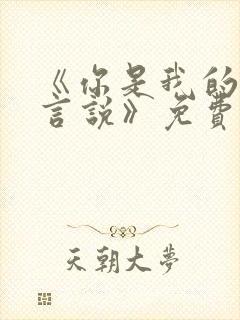 《你是我的
言說》免費
天朝大夢